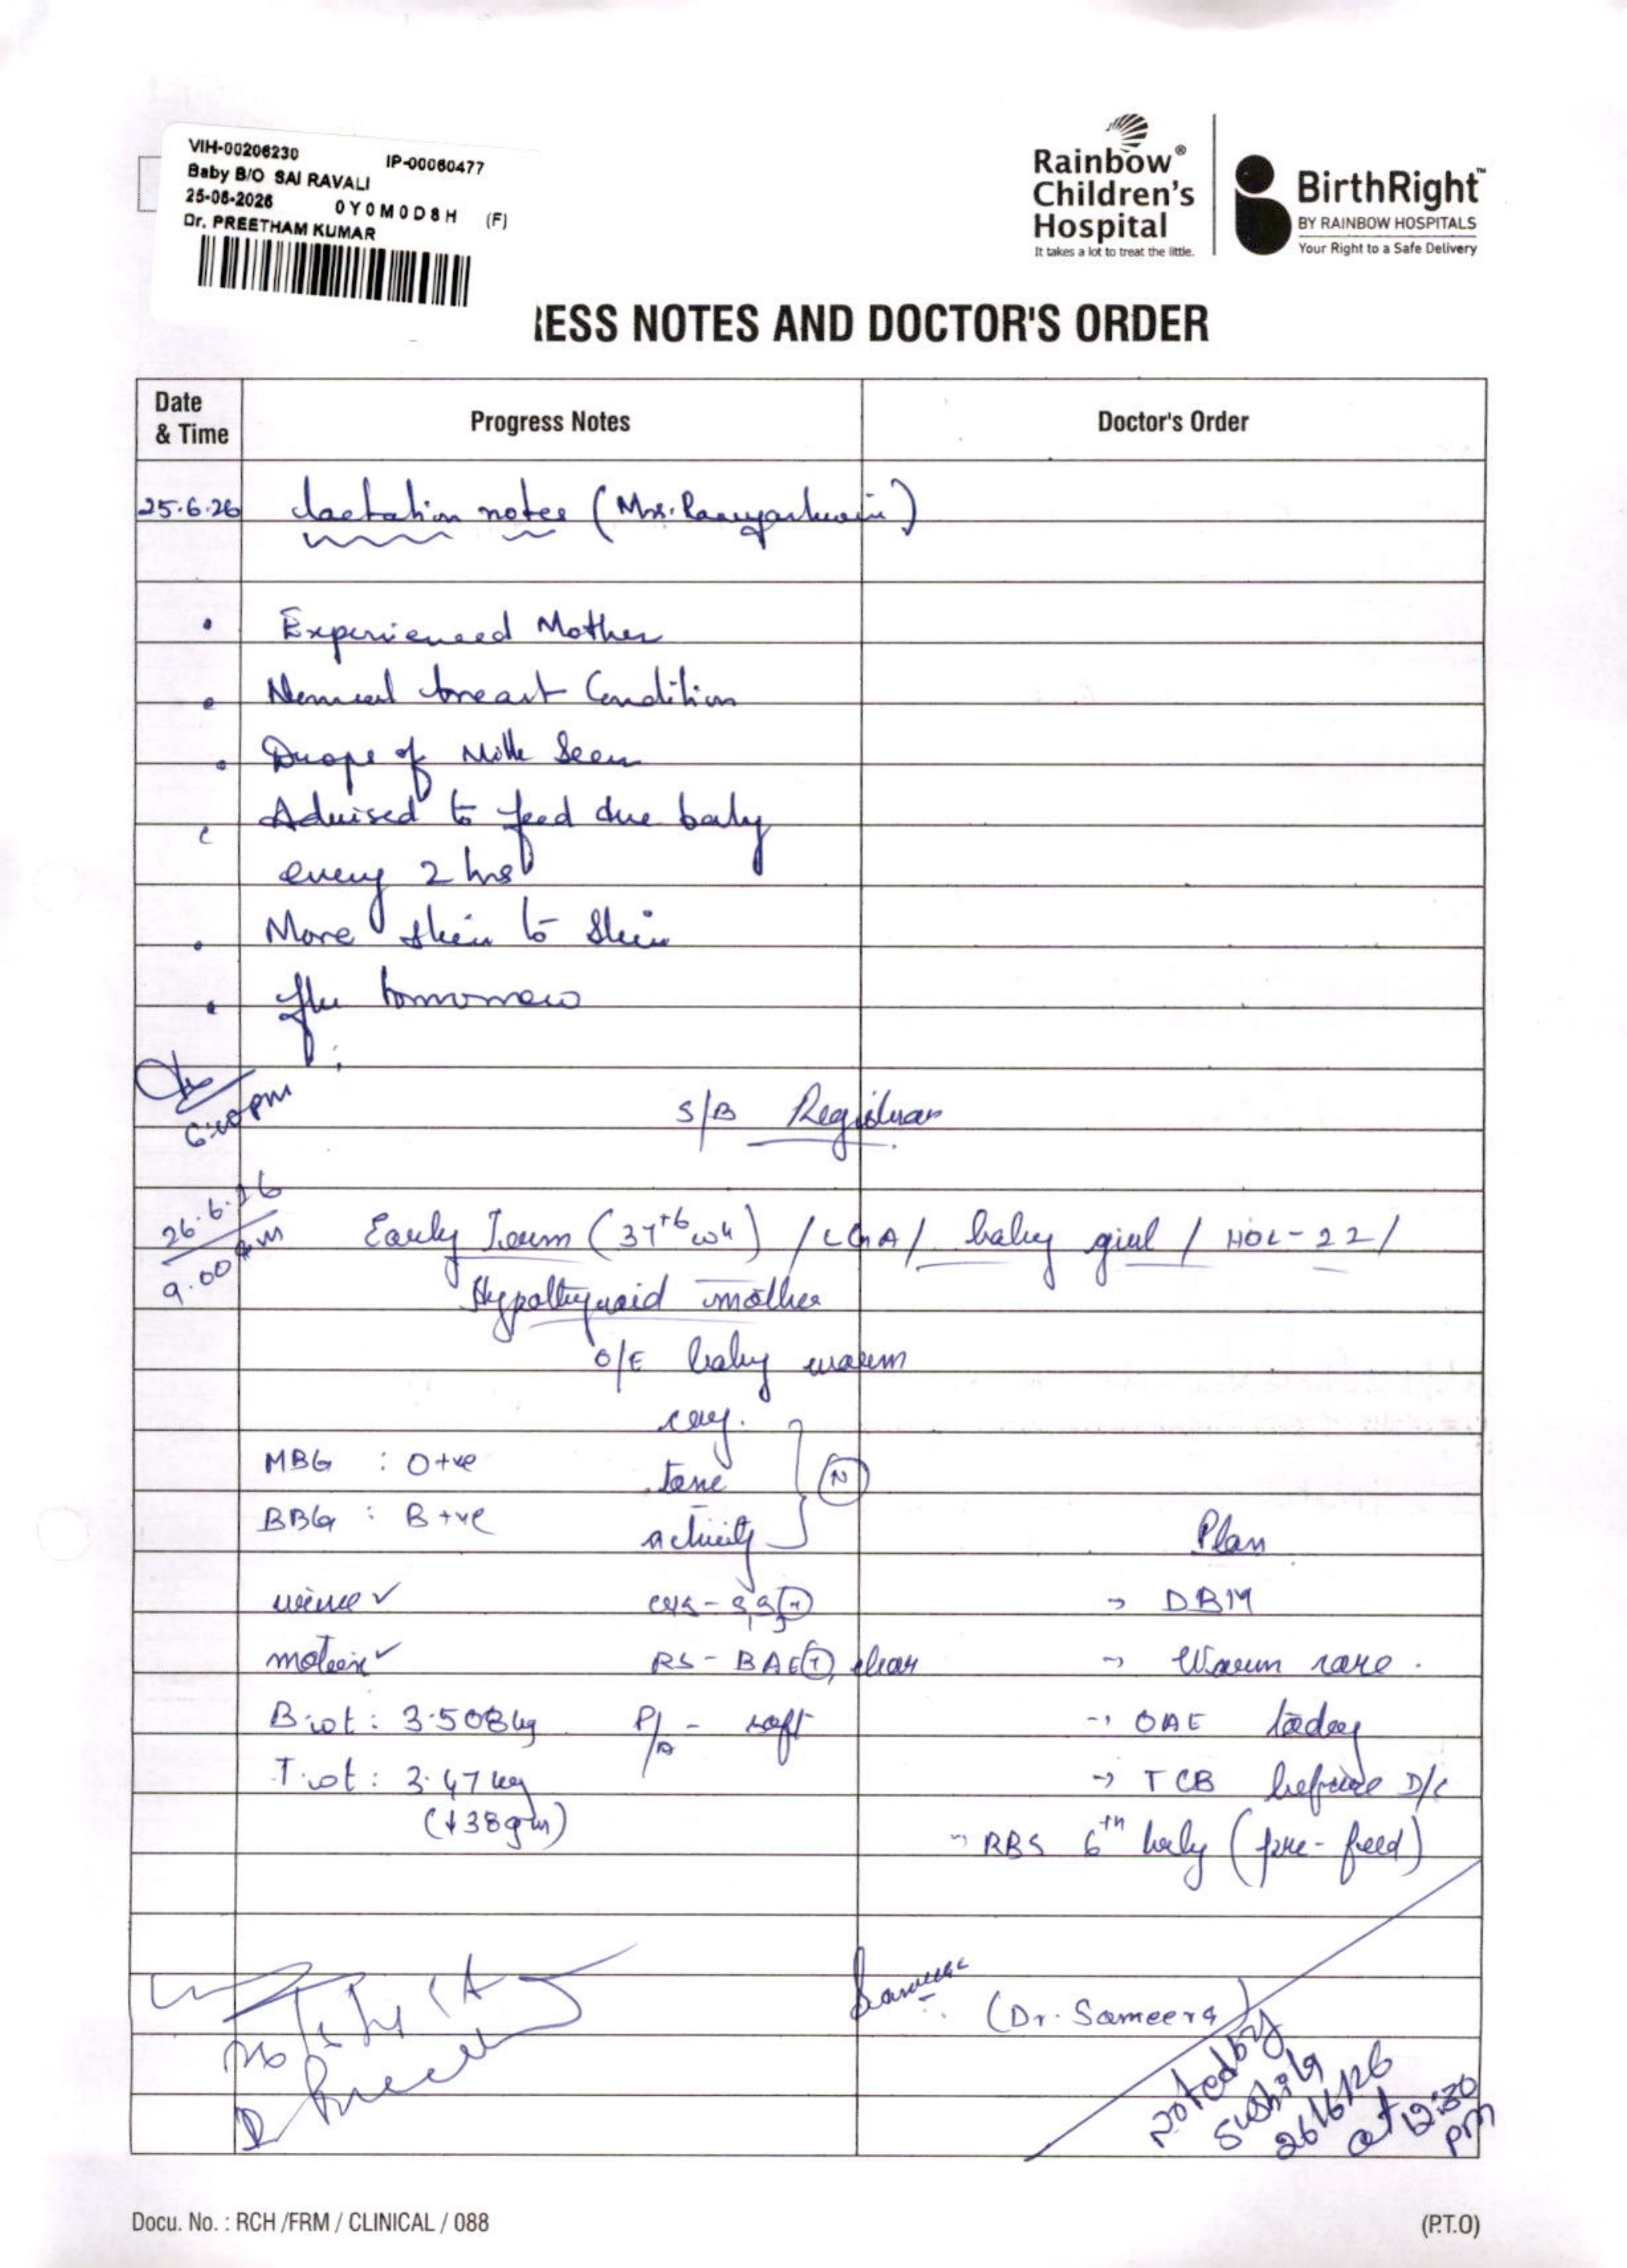 VIH-00206230 IP-00060477
Baby B/O SAI RAVALI
25-06-2026 0Y0M0D8H (F)
Dr. PREETHAM KUMAR
Rainbow®
Children's
Hospital
It takes a lot to treat the little.
BirthRight™
BY RAINBOW HOSPITALS
Your Right to a Safe Delivery
RESS NOTES AND DOCTOR'S ORDER
Date & Time Progress Notes Doctor's Order
25.6.26 Lactation notes (Mrs.
• Experienced Mother
• Normal breast Condition
• Drops of Milk Seen
• Advised to feed the baby
every 2 hrs
• More skin to skin
• f/u tomorrow
6:00pm
S/B Registrar
26.6.26
9.00 am
Early Term (37+6 wk) / LGA / baby girl / HOL-22 /
Hypothyroid mother
O/E baby warm
cry.
MBG : O+ve tone (N)
BBG : B+ve activity
Plan
urine ✓ CVS - S1S2(+) → DBM
motion ✓ RS - BAE(+), clear → Warm care.
B.wt : 3.508kg P/A - soft → OAE today
T.wt : 3.47 kg → TCB before D/C
(↓38gm)
→ RBS 6th hrly (pre-feed)
(Dr. Sameera)
Noted by
Sushila
26/6/26
at 12:30
pm
Docu. No. : RCH /FRM / CLINICAL / 088 (P.T.O)